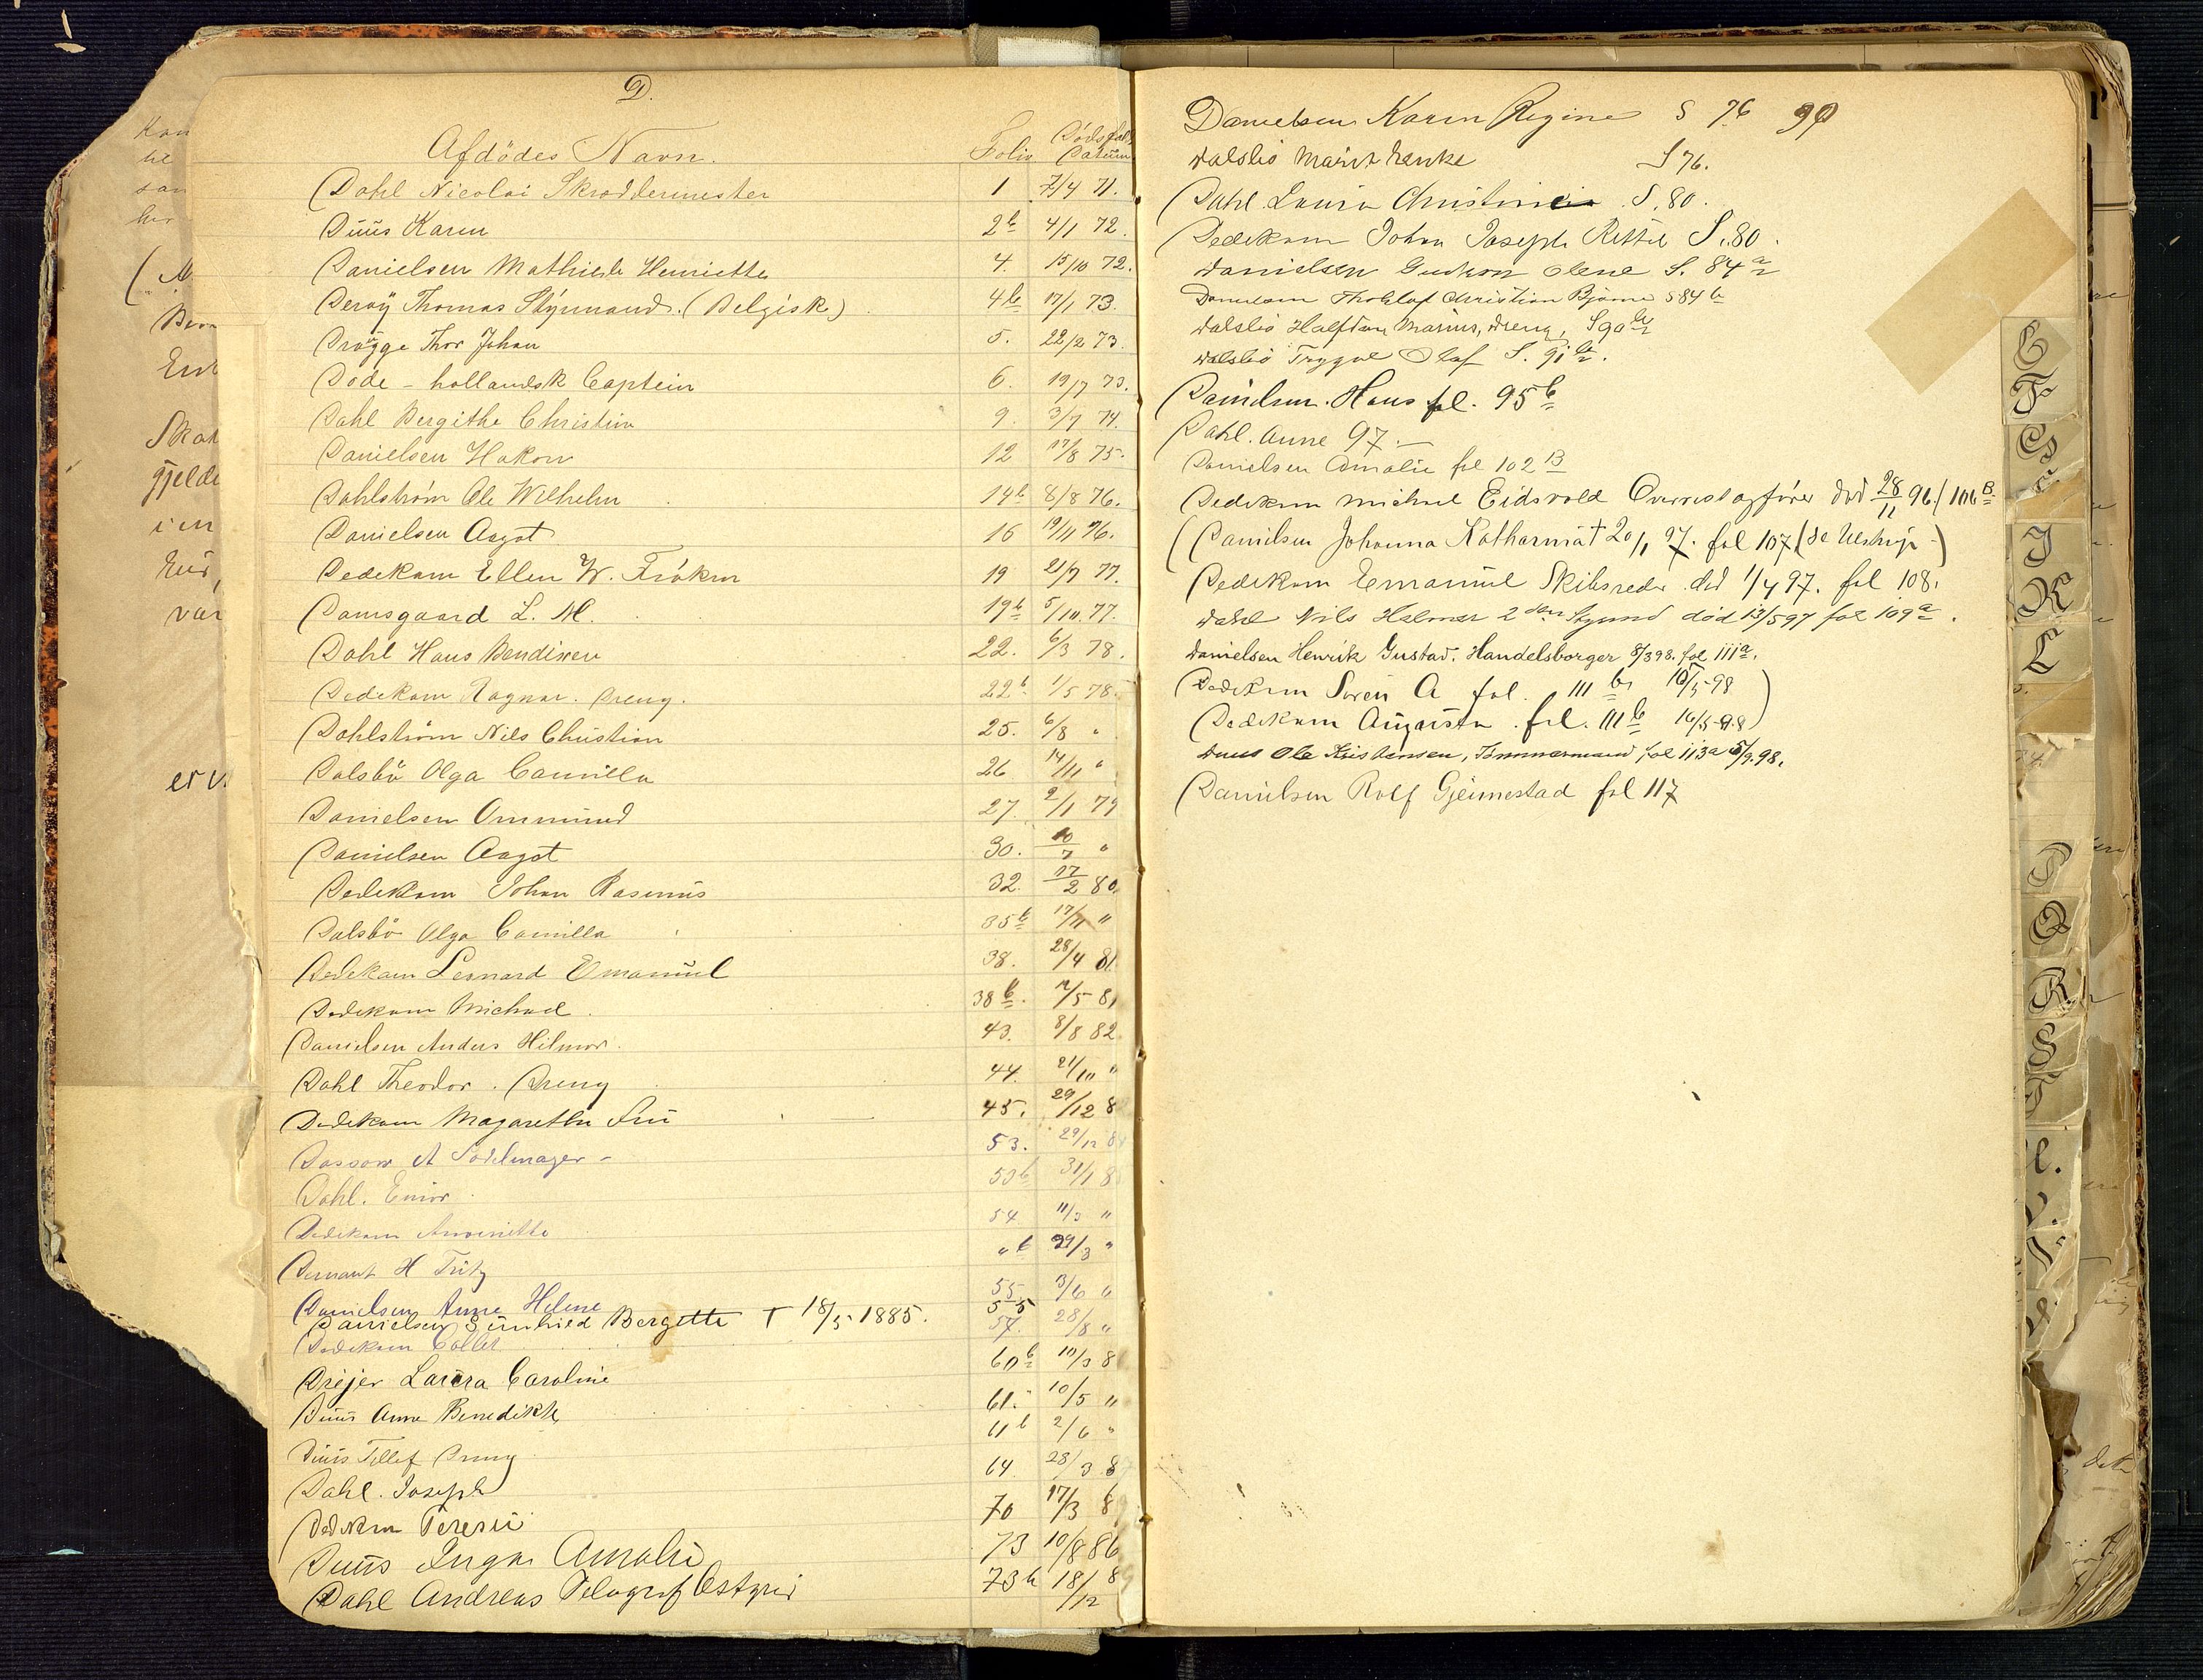 D.
Afdödes Navn. Folio Dödsfalds Datum
Dahl Nicolai Skræddermester 1 7/4 71.
Duüs Karen 2b 4/1 72.
Danielsen Mathilde Henriette 4. 15/10 72.
Deroy Thomas Styrmand. (Belgisk) 4b 17/1 73.
Drögge Thor Johan 5. 22/2 73.
Dode - hollandsk Captein 6. 19/7 73.
Dahl Bergithe Christine 9. 3/7 74.
Danielsen Hakon 12 17/8 75.
Dahlström Ole Wilhelm 14b 8/8 76.
Danielsen Aagot 16 19/11 76.
Dedekam Ellen W. Frøken 19 2/7 77.
Damsgaard L. M. 19b 5/10. 77.
Dahl Hans Bendixen 22. 6/3 78.
Dedekam Ragnar. Dreng. 22b 1/5 78.
Dahlström Nils Christian 25. 6/8 "
Dalsbö Olga Camilla 26 14/11 "
Danielsen Ommund 27. 2/1 79
Danielsen Aagot 30. 10/7 "
Dedekam Johan Rasmus 32. 27/2 80.
Dalsbö Olga Camilla 35b 17/11 "
Dedekam Lennard Emanuel 38. 28/4 81.
Dedekam Michael 38b. 7/5 81
Danielsen Anders Hilmar. 43. 8/8 82.
Dahl Theodor. Dreng 44. 21/10 "
Dedekam Magarethe Frü 45. 29/12 8
Dassow A Sadelmager - 53. 29/12 8
Dahl. Einar 53b 31/1 8
Dedekam Antoinette 54 11/3 "
H Fritz "b 29/3 "
Danielsen Anne Helene 55. 3/6 "
Danielsen Gunhild Bergette † 18/5 1885. 55
Dedekam Collet 57. 28/8 "
Drejer Laura Caroline 60b 10/3 8
Duüs Anne Benedikte 61. 10/5 "
Duüs Tellef Dreng 61b 2/6 "
Dahl. Joseph 64. 23/3 8
Dedekam Terese 70 17/3 8
Duus Inga Amalie 73 10/8 86
Dahl Andreas Telegraf 73b 18/12 8
Danielsen Karen Regine S 76 90
Dalsbö Marit Lenke S 76.
Dahl Laura Christine S. 80.
Dedekam Johan Joseph Kittil S. 80.
Danielsen Gudrun Olene S. 84a
Danielsen Tholof Christian Bjarne S 84b
Dalsbö Halfdan Marius, Dreng, S 90b
Dalsbö Trygve Olaf S. 91b.
Danielsen. Hans fol. 95b
Dahl. Anne 97. —
Danielsen Amalie fol 102 B
Dedekam Michael Eidsvold Overretssagfører död 28/11 96. (106B.
(Danielsen Johanna Katharina † 20/1 97. fol 107
Dedekam Emanuel Skibsreder död 1/4 97. fol 108.
Dahl Nils Helmer 2den Styrmd död 13/5 97 fol 109a.
Danielsen Henrik Gustav. Handelsborger 8/3 98. fol 111a.
Dedekam Sören A fol. 111b 10/5-98
Dedekam Augusta. fol. 111b 16/5-98)
Duus Ole Kristensen, Tömmermand, fol 113a 5/9.98.
Danielsen Rolf Gjeimestad fol 117
E
F
G
I
K
L
P
Q
R
S
T